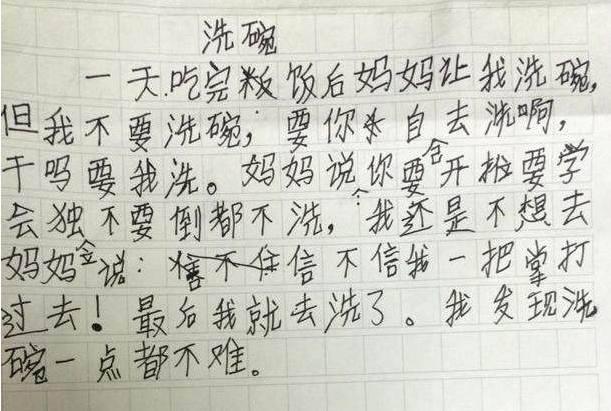 洗碗
一天.吃完饭后妈妈让我洗碗,
但我不要洗碗,要你自去洗啊,
干吗要我洗。妈妈说你要开始要学
会独不要倒都不洗,我还是不想去
妈妈说:信不信我一把掌打
过去!最后我就去洗了。我发现洗
碗一点都不难。